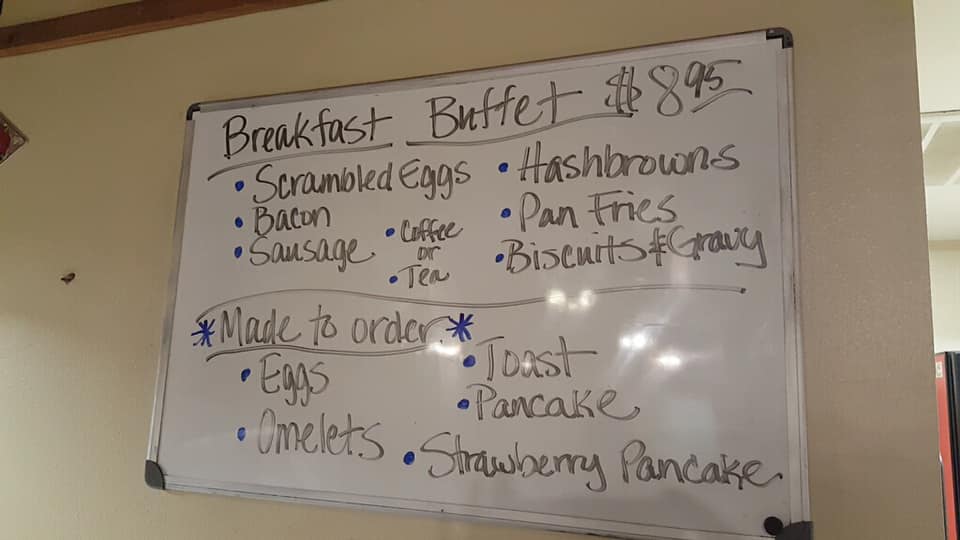 Breakfast Buffet $8.95
• Scrambled Eggs
• Bacon
• Sausage
• Coffee
or
• Tea
• Hashbrowns
• Pan Fries
• Biscuits & Gravy
* Made to order *
• Eggs
• Omelets
• Toast
• Pancake
• Strawberry Pancake